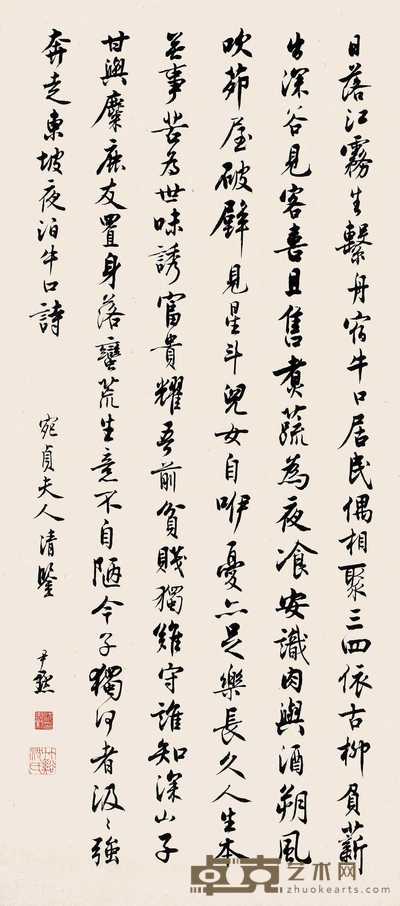 日落江霧生繫舟宿牛口居民偶相聚三四依古柳負薪
出深谷見客喜且售煮蔬為夜飡安識肉與酒朔風
吹茆屋破壁見星斗兒女自咿憂亦足樂長久人生本
無事苦為世味誘富貴耀吾前貧賤獨難守誰知深山子
甘與麋鹿友置身落蠻荒生意不自陋今予獨何者汲〻強
奔走東坡夜泊牛口詩
宛貞夫人清鑒
尹默
卓克艺术网
zhuokearts.com